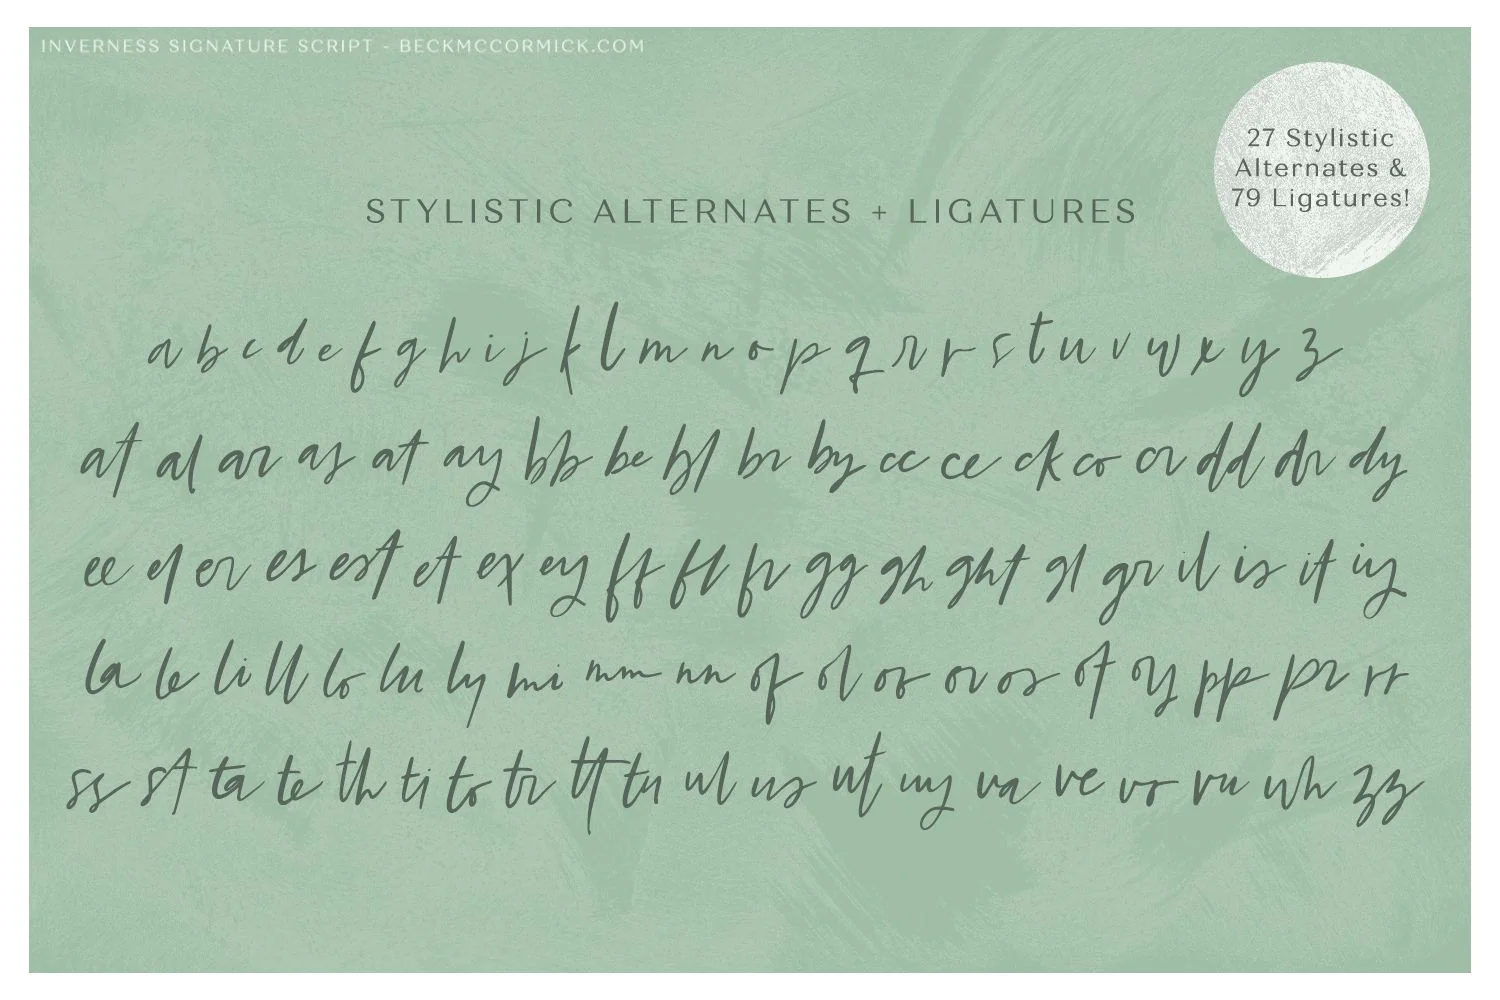 INVERNESS SIGNATURE SCRIPT - BECKMCCORMICK.COM
27 Stylistic
Alternates &
79 Ligatures!
STYLISTIC ALTERNATES + LIGATURES
a b c d e f g h i j k l m n o p q r r s t u v w x y z
at al ar as at ay bb be bl br by cc ce ck co cr dd dr dy
ee el er es est et ex ey ff fl fr gg gh ght gl gr il is it iy
la le li ll lo lu ly mi mm nn of ol oo or os ot oy pp pr rr
ss st ta te th ti to tr tt tu ul us ut uy va ve vo vu wh zz